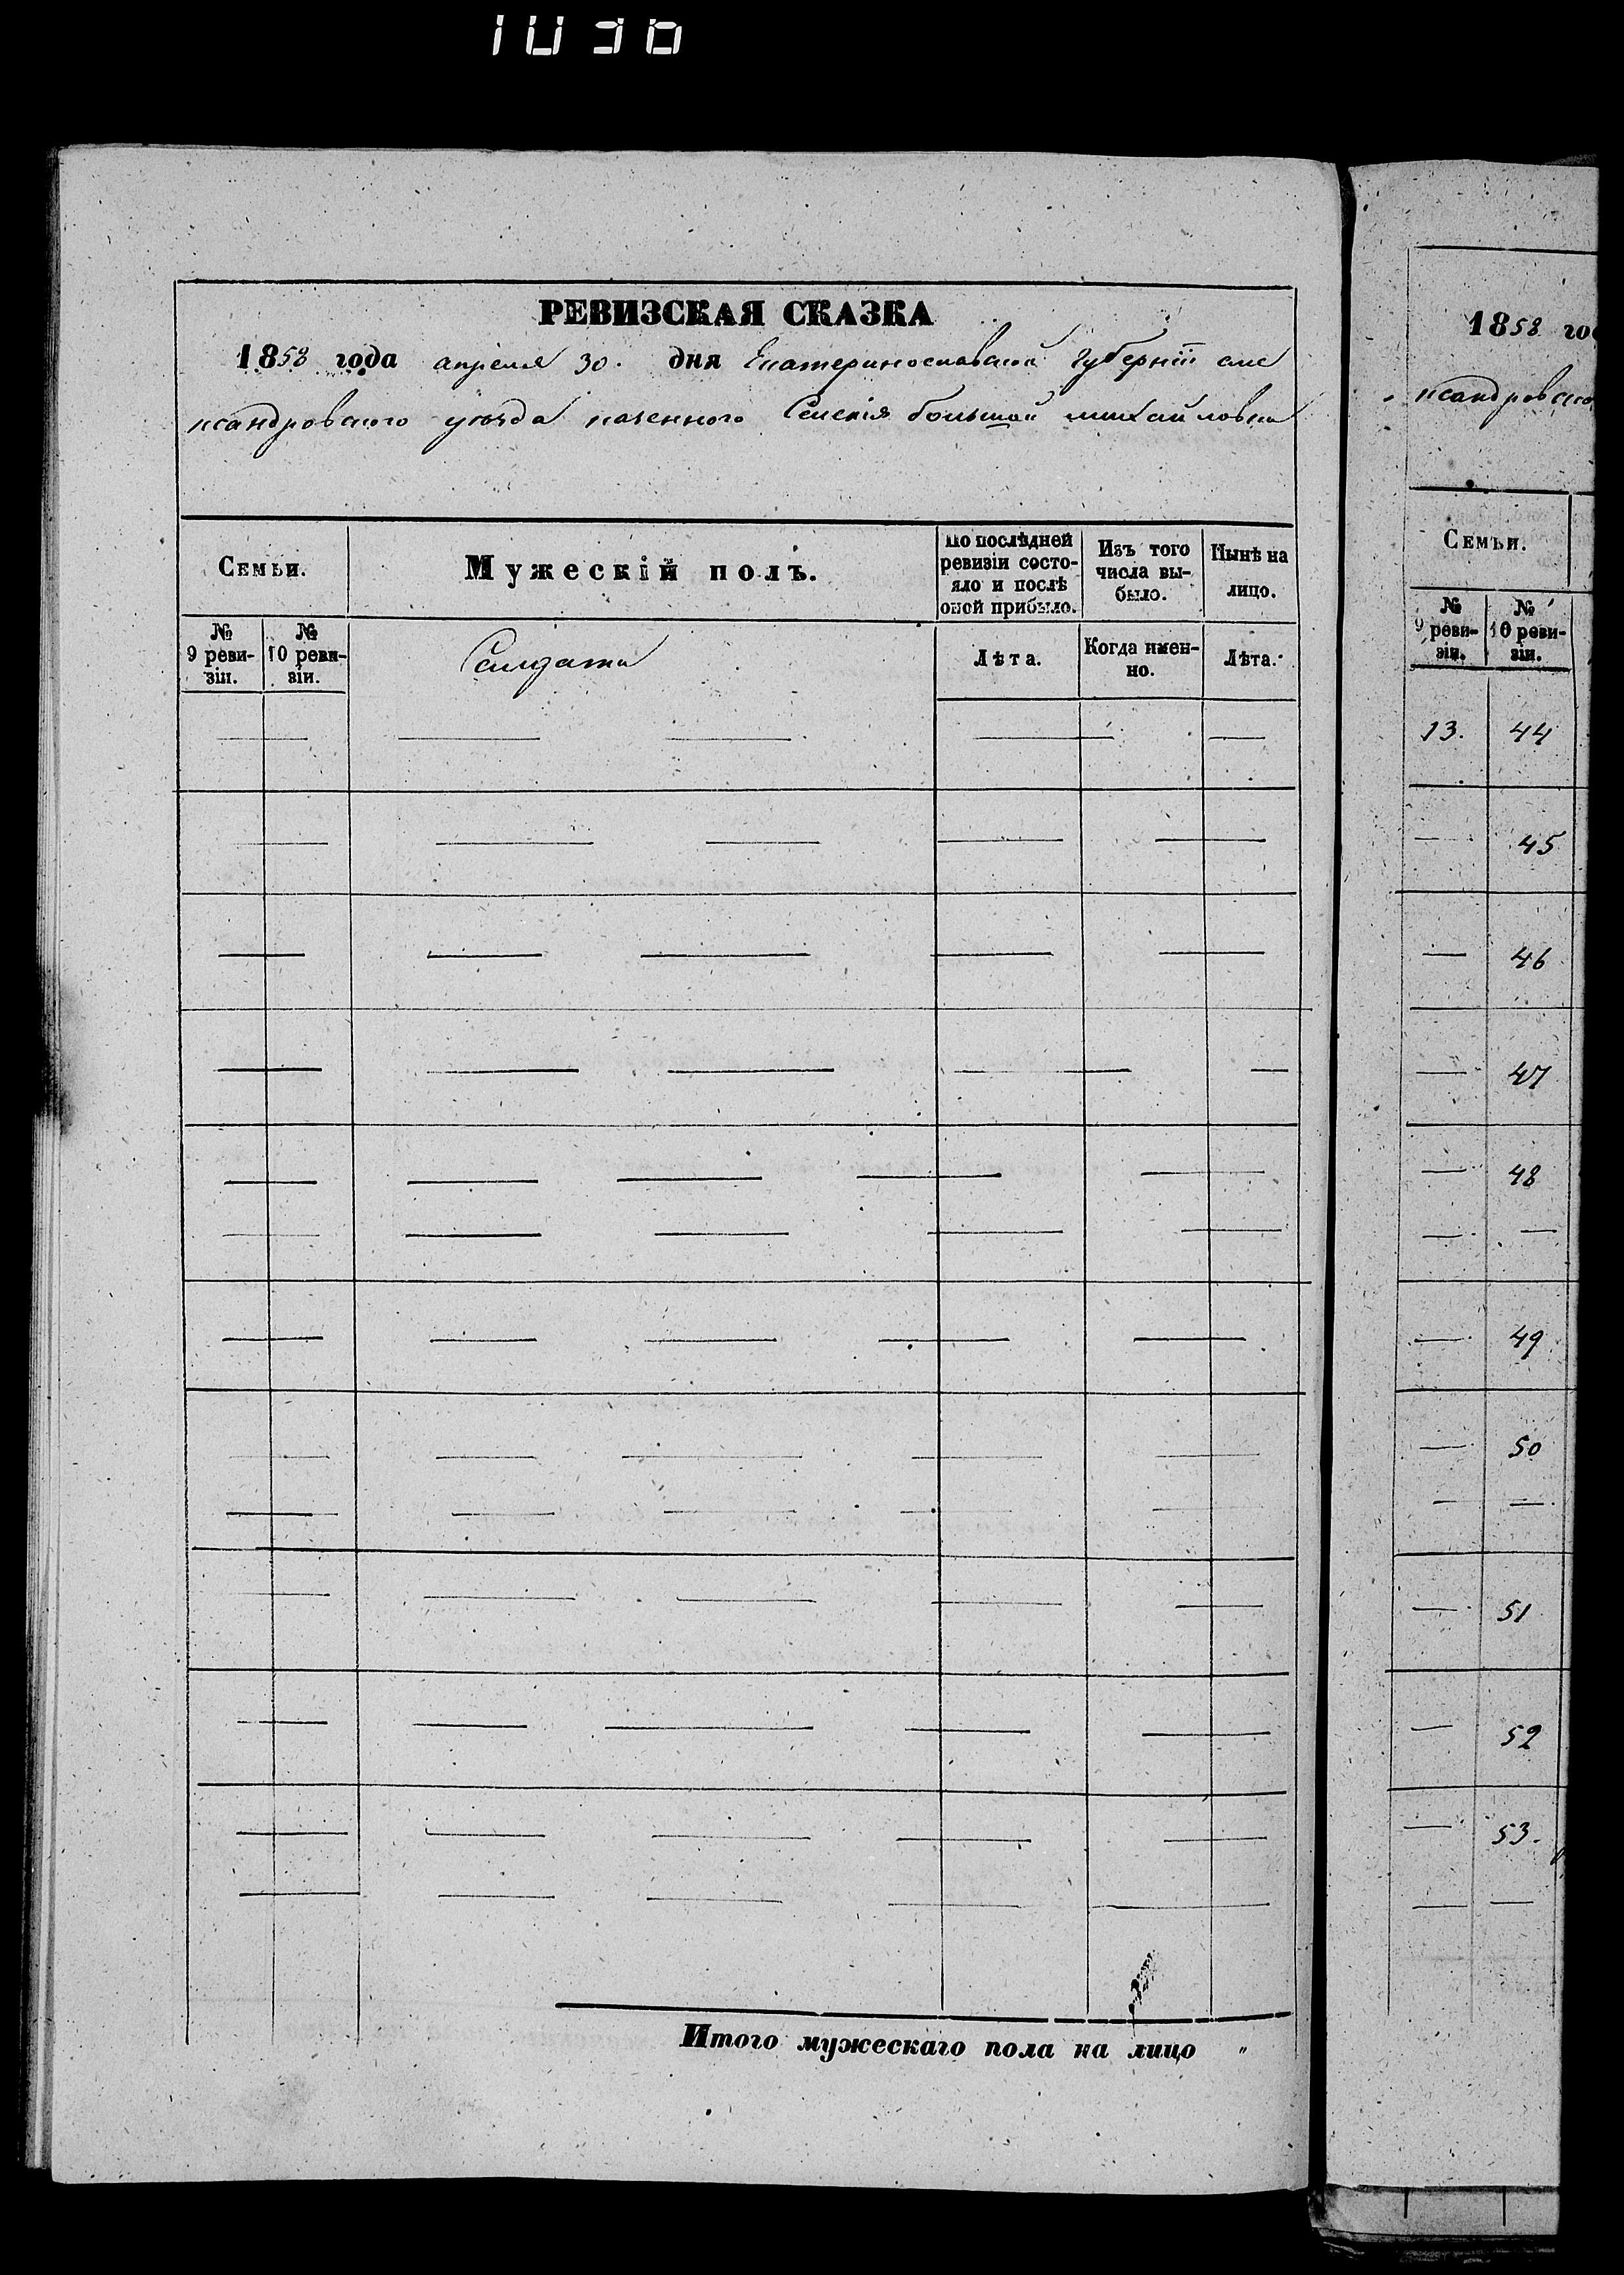 РЕВИЗСКАЯ СКАЗКА
1858 года апреля 30. дня Екатеринославской губернiи але
ксандровского уезда казенного Селенiя большой михайловки
Семьи.
Мужескiй полъ.
По послѣдней ревизiи состо-
яло и послѣ
оной прибыло.
Изъ того
числа вы-
было.
Нынѣ на
лицо.
№
9 реви-
зiи.
№
10 реви-
зiи.
Лѣта.
Когда имен-
но.
Лѣта.
Итого мужескаго пола на лицо "
1858 го
ксандровско
Семьи.
№
9 реви-
зiи.
№
10 реви-
зiи.
13. 44
45
46
47
48
49
50
51
52
53.